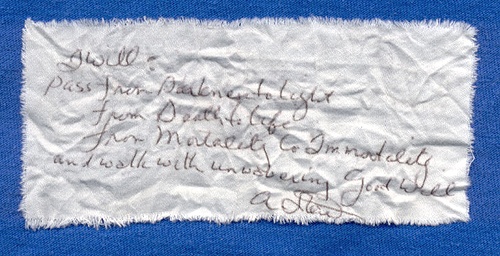 I will:
Pass from Darkness to Light
From Death to Life
From Mortality to Immortality
and walk with unwavering Good Will
A